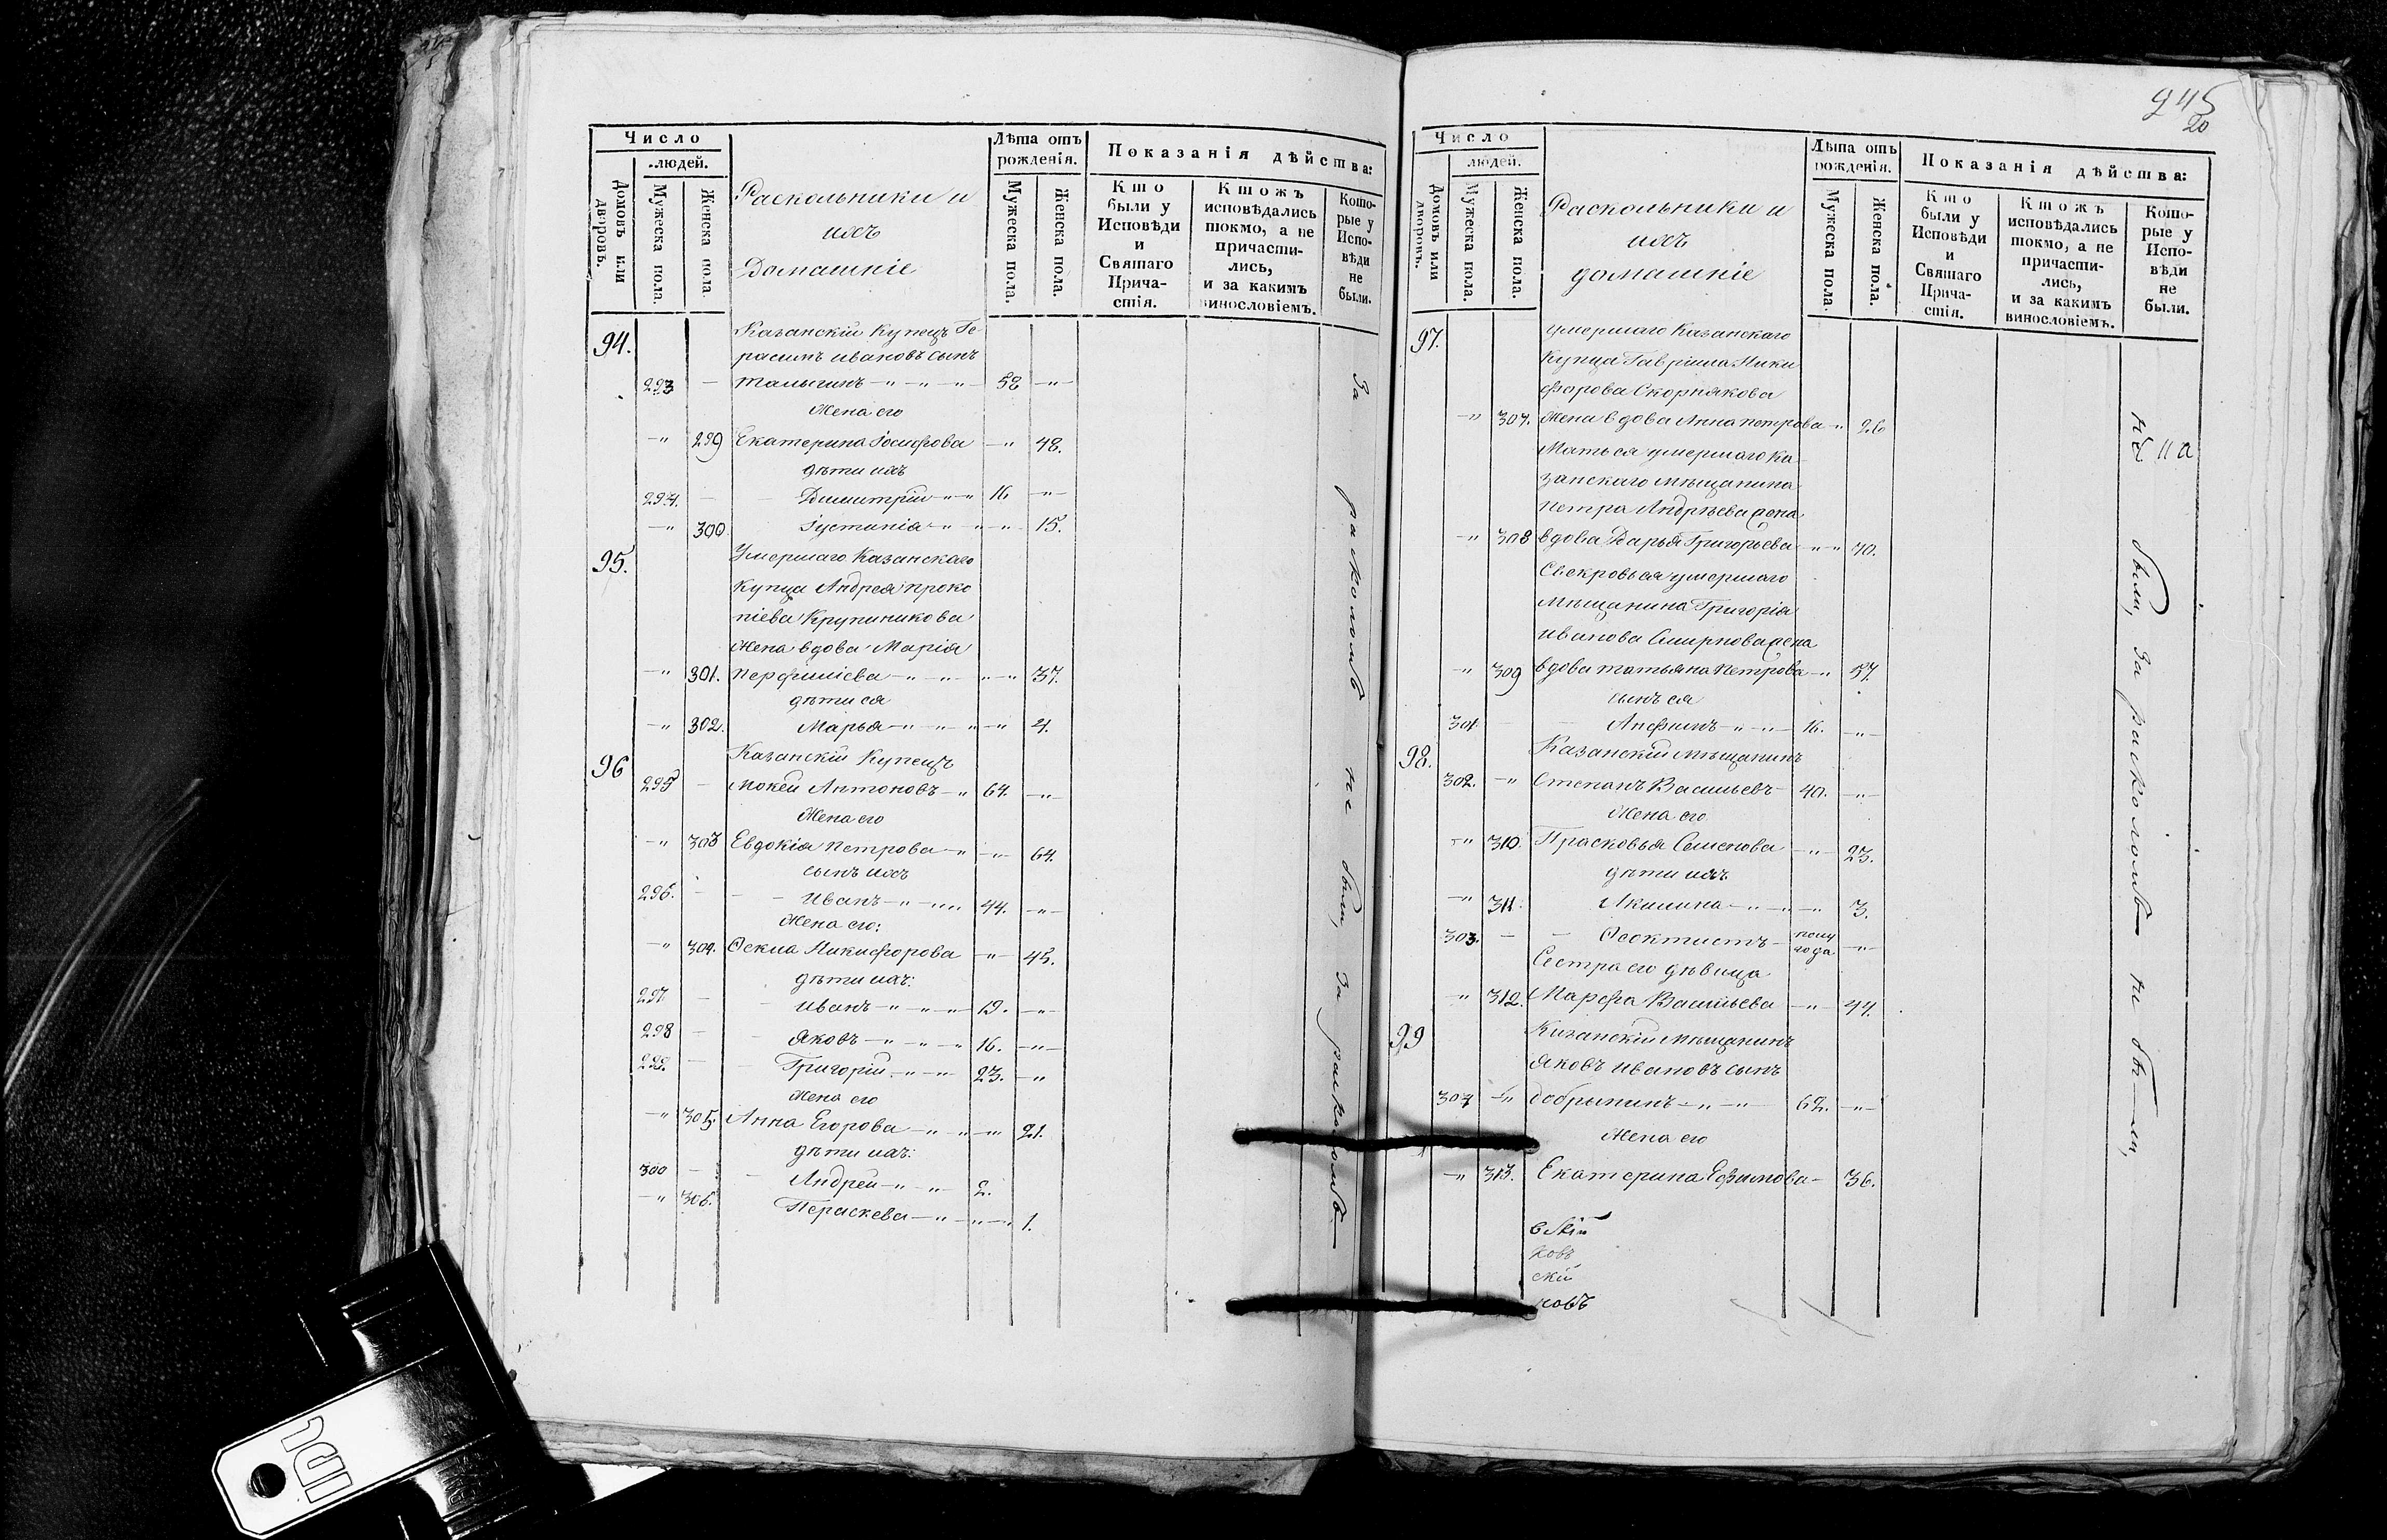 Число
людей.
Домовъ или дворовъ.
Мужеска пола.
Женска пола.
Раскольники и
ихъ
Домашніе
Лѣта отъ рожденія.
Мужеска пола.
Женска пола.
Показанія дѣйства:
Кто были у Исповѣди и Святаго Причастія.
Ктожъ исповѣдались токмо, а не причастились, и за какимъ винословіемъ.
Которые у Исповѣди не были.
94. Казанскій Купецъ Ге
расимъ Ивановъ сынъ
293 — Талыгинъ — „ — „ — „ — 58 — „ —
Жена его
— „ 299 Екатерина Іосифова — „ 48.
дѣти ихъ
294. — Димитрій — „ — „ 16 — „ —
— „ 300 Іустинія — „ — „ — „ — 15.
95. Умершаго Казанскаго
купца Андрея Проко
піева Крупникова
жена вдова Марія
— „ 301. Перфиліева — „ — „ — „ — „ 37.
дѣти ея
— „ 302. Марья — „ — „ — „ — „ 4.
96 Казанскій Купецъ
295 — Мокей Антоновъ — „ 64. — „ —
Жена его
— „ 303 Евдокія Петрова — „ — „ — 64.
сынъ ихъ
296. — — Иванъ — „ — „ „ 44. — „ —
Жена его:
— „ 304. Ѳекла Никифорова — „ — 45.
дѣти ихъ:
297 — — Иванъ — „ — „ — „ 19. — „ —
298 — — Яковъ — „ — „ — „ 16. — „ —
299. — — Григорій — „ — „ — 23. — „
Жена его
— „ 305. Анна Егорова — „ — „ — „ — 21.
дѣти ихъ:
300 — — Андрей — „ — „ — 2.
— „ 306. Параскева — „ — „ — „ 1.
За расколомъ не были, За расколомъ
945
20
Число
людей.
Домовъ или дворовъ.
Мужеска пола.
Женска пола.
Раскольники и
ихъ
домашніе
Лѣта отъ рожденія.
Мужеска пола
Женска пола.
Показанія дѣйства:
Кто были у Исповѣди и Святаго Причастія.
Ктожъ исповѣдались токмо, а не причастились, и за какимъ винословіемъ.
Которые у Исповѣди не были.
97. умершаго Казанскаго
Купца Гавріила Ники
форова Скорнякова
— „ 307. жена вдова Анна Петрова — „ 26
Мать ея умершаго Ка
занскаго мѣщанина
Петра Андрѣева жена
— „ 308 вдова Дарья Григорьева — „ — „ 70.
Свекровь ея умершаго
мѣщанина Григорія
Иванова Смирнова жена
— „ 309 вдова Татьяна Петрова — „ 57.
сынъ ея
301. — — Анфимъ — „ — „ — 16. — „ —
98. Казанскій мѣщанинъ
302. — „ Степанъ Васильевъ — 40. — „ —
Жена его
— „ 310. Прасковья Семенова — „ — 23.
дѣти ихъ
— „ 311. Акилина — „ — „ — „ 3.
303. — — Ѳеоктистъ — полу
года — „ —
Сестра его дѣвица
— „ 312. Марфа Васильева — „ — 44.
99 Казанскій мѣщанинъ
Яковъ Ивановъ сынъ
304 — „ добрынинъ — „ — „ — 62. — „ —
Жена его
— „ 313. Екатерина Ефимова — 36.
ковъ
скій
ковъ
были, За расколомъ не были,